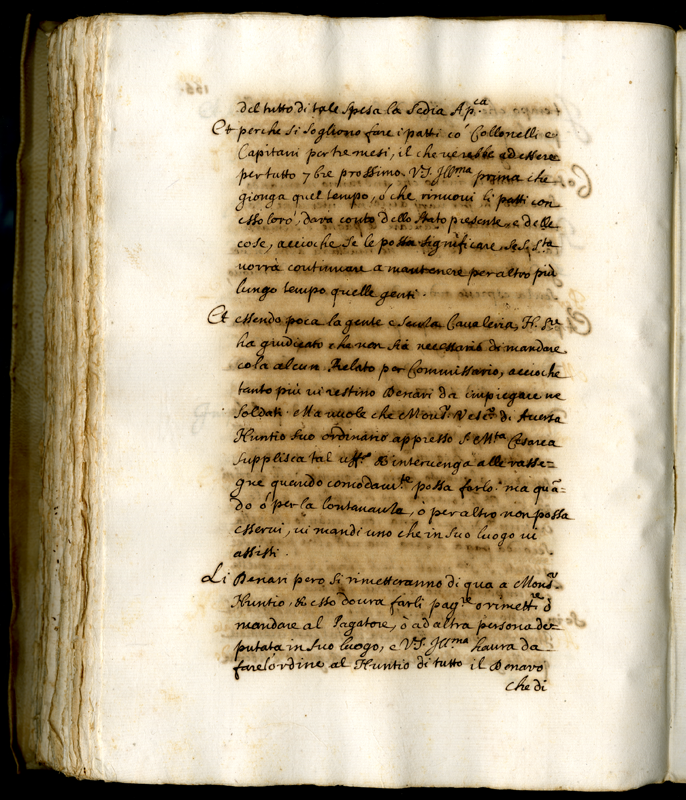 del tutto di tale spesa la Sedia Ap.ca
Et perche si sogliono fare i patti co' Collonelli e
Capitani per tre mesi, il che verebbe ad essere
per tutto 7bre prossimo. V.S. Ill.ma prima che
gionga quel tempo, ò che rinuovi li patti con
esso loro, darà conto dello stato presente, e delle
cose, acciochè se le possa significare se S. S.ta
vorrà continuare a mantenere per altro più
lungo tempo quelle genti.
Et essendo poca la gente e senza Cavaleria, N. S.re
ha giudicato che non sia necessario di mandare
colà alcun Prelato per Commissario, acciochè
tanto più vi restino Denari da impiegare ne
Soldati. Ma vuole che Mons.r Vesc.o di Aversa
Nuntio suo ordinario appresso S. M.ta Cesarea
supplisca tal uff.o & intervenga alle rasse=
gne quando comodam.te possa farlo: ma quã=
do ò per la lontananza, ò per altro non possa
esservi, vi mandi uno che in suo luogo vi
assisti.
Li Denari però si rimetteranno di qua a Mons.r
Nuntio, & esso dovrà farli pag.re o rimett.re ò
mandare al Pagatore, ò ad altra persona de=
putata in suo luogo, e V.S. Ill.ma haurà da
fare l'ordine al Nuntio di tutto il Denaro
che di